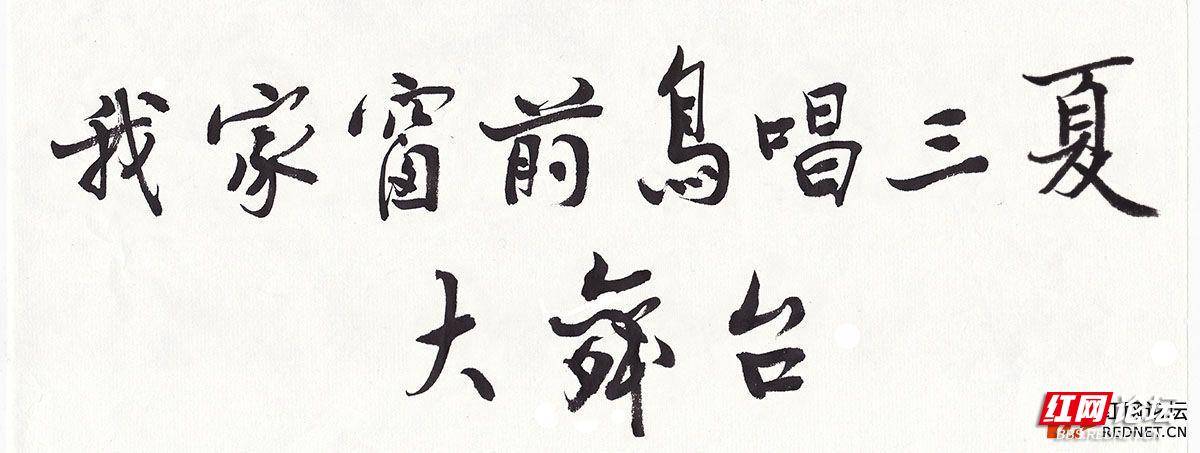 我家窗前鸟唱三夏
大舞台
红网论坛
REDNET.CN